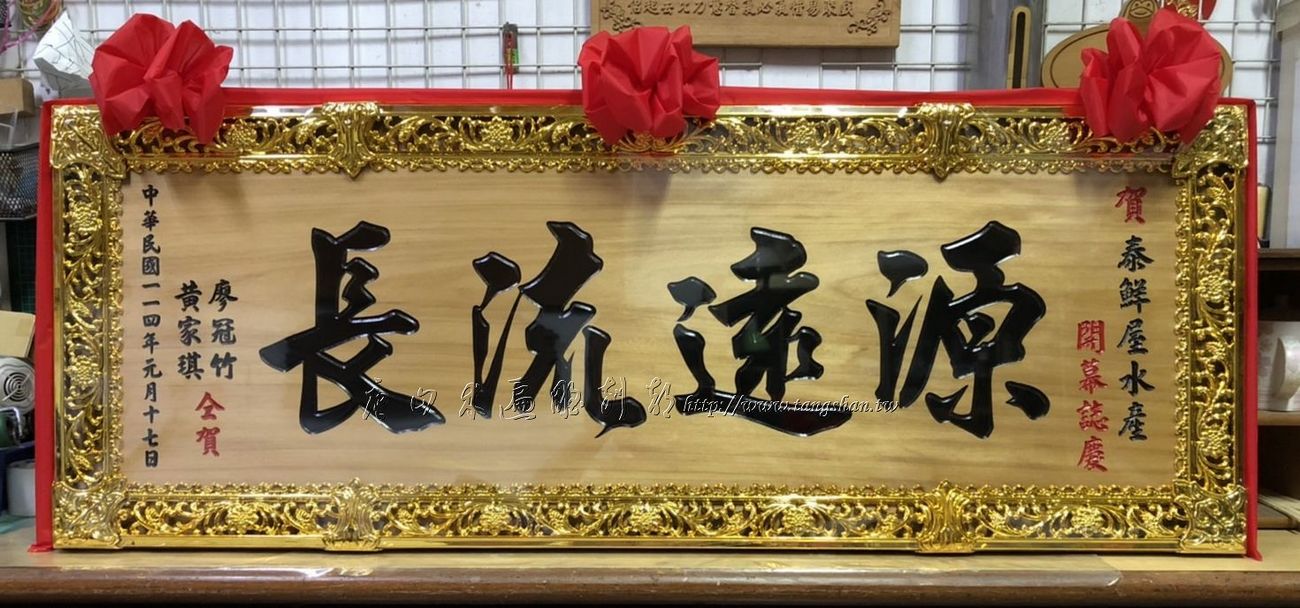 賀 泰鮮屋水產
開幕誌慶
源遠流長
廖冠竹
黃家琪
仝賀
中華民國一一四年元月十七日
http://www.tangshan.tw